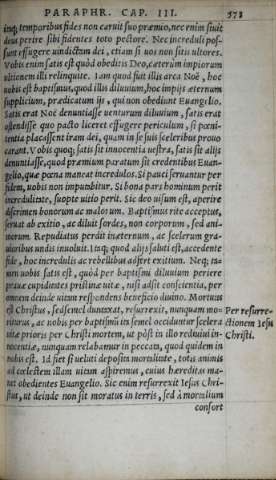 PARAPHR. CAP. III. 573
inq; temporibus fides non caruit suo præmio, nec enim sinit
deus perire sibi fidentes toto pectore. Nec increduli pos-
sunt effugere uindictam dei, etiam si uos non sitis ultores.
Vobis enim satis est quòd obeditis Deo, cæterum impiorum
ultionem illi relinquite. Iam quod fuit illis arca Noë, hoc
nobis est baptismus, quod illis diluuium, hoc impijs æternum
supplicium, prædicatum ijs, qui non obediunt Euangelio.
Satis erat Noë denuntiasse uenturum diluuium, satis erat
ostendisse quo pacto liceret effugere periculum, si pœni-
tentia placassent iram dei, quam in se suis sceleribus prouo
carant. Vobis quoq; satis sit innocentia uestra, satis sit alijs
denuntiasse, quod præmium paratum sit credentibus Euan-
gelio, quæ pœna maneat incredulos. Si pauci seruantur per
fidem, uobis non imputabitur. Si bona pars hominum perit
incredulitate, suopte uitio perit. Sic deo uisum est, aperire
discrimen bonorum ac malorum. Baptismus rite acceptus,
seruat ab exitio, ac diluit sordes, non corporum, sed ani-
morum. Repudiatus perdit inæternum, ac scelerum gra-
uioribus undis inuoluit. Itaq; quod alijs saluti est, accedente
fide, hoc incredulis ac rebellibus adfert exitium. Neq; ta-
men uobis satis est, quòd per baptismi diluuium periere
prauæ cupidientes pristinæ uitæ, nisi adsit conscientia, per
omnem deinde uitam respondens beneficio diuino. Mortuus
est Christus, sed semel duntaxat, resurrexit, nunquam mo-
riturus, ac nobis per baptismum ita semel occiduntur scelera
uitæ prioris per Christi mortem, ut pòst in illo rediuiui in-
nocentiæ, nunquam relabamur in peccata, quod quidem in
nobis est. Id fiet si ueluti deposita mortalitate, totis animis
ad cœlestem illam uitam aspiremus, cuius hæreditas ma-
net obedientes Euangelio. Sic enim resurrexit Iesus Chri-
stus, ut deinde non sit moratus in terris, sed à mortalium
consort
Per resurre-
ctionem Iesu
Christi.